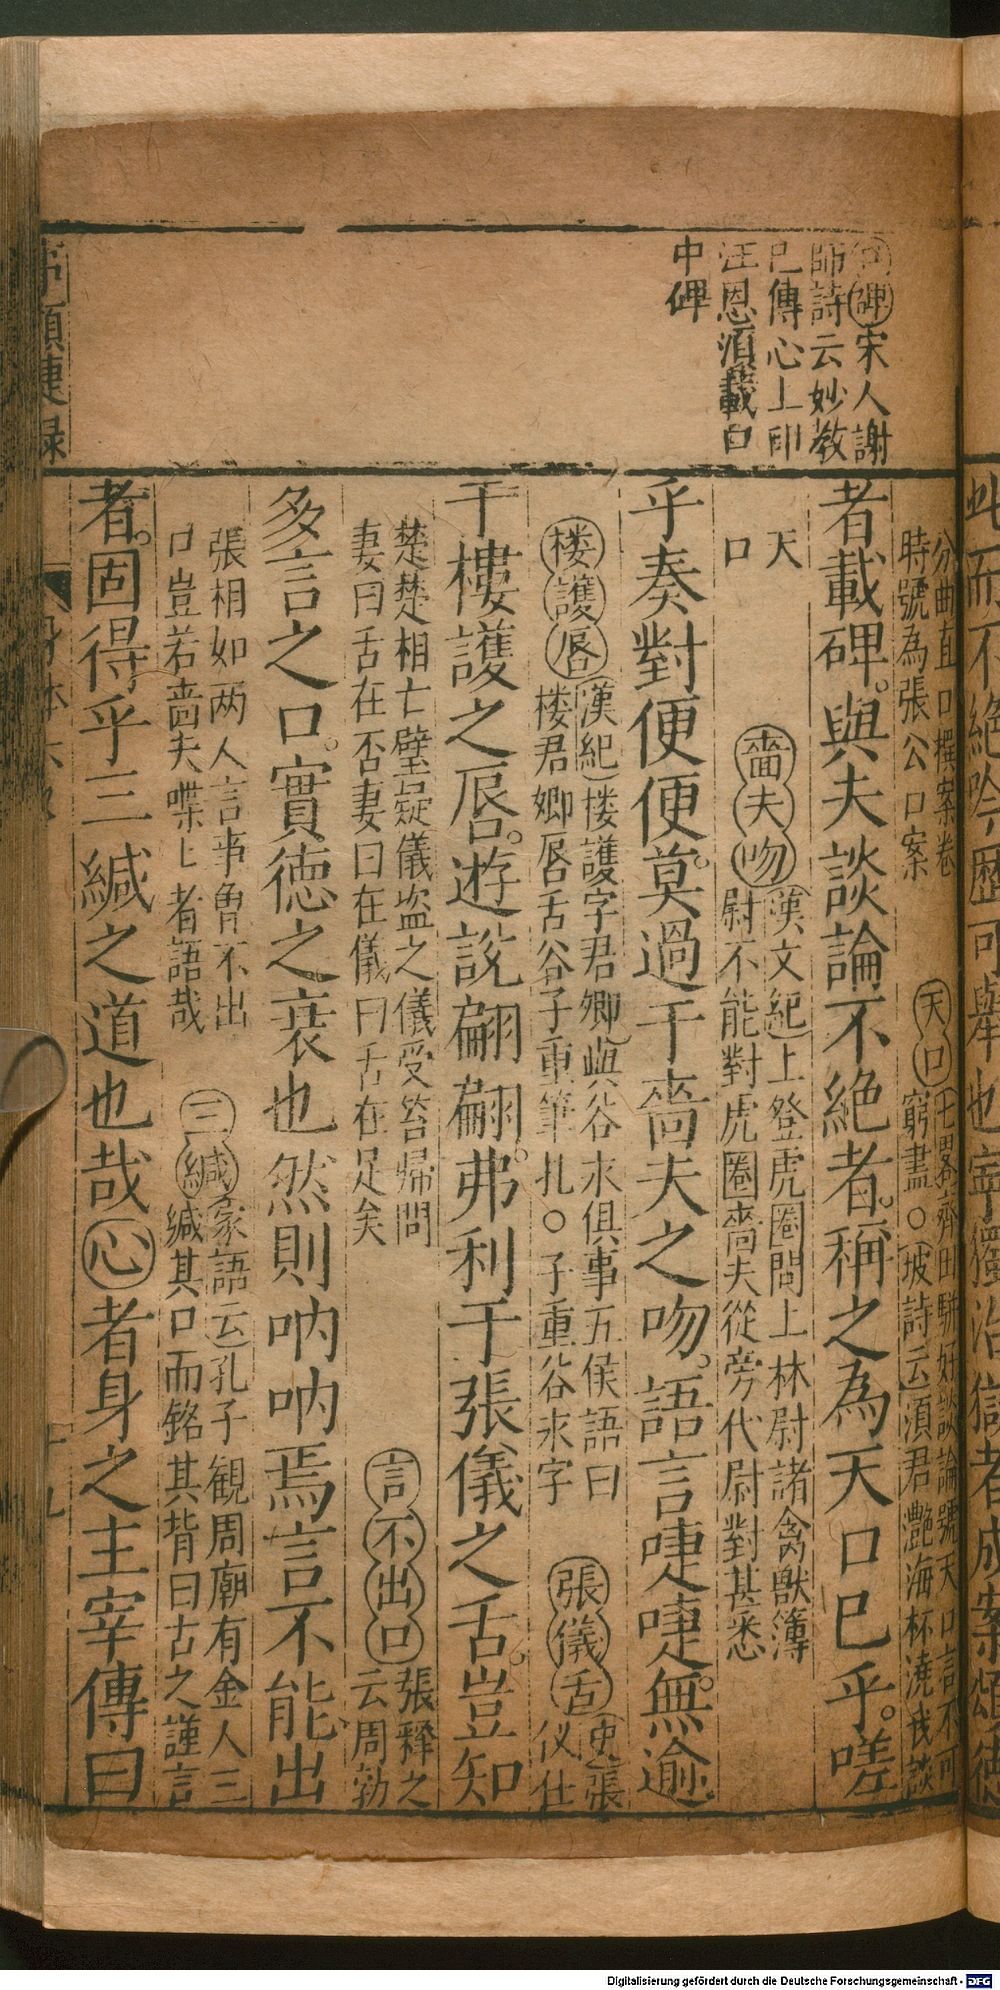 口碑宋人謝
師詩云妙教
已傳心上印
汪恩須載口
中碑
此而不絕吟歷可舉也寧獨治獄者成案頌德
分曲直口撰案卷
時號為張公口案
天口
七畧齊田駢好談論號天口言不可
窮盡○坡詩云須君灔海杯澆我談
者載碑與夫談論不絕者稱之為天口巳乎嗟
天
口
嗇夫吻
漢文紀上登虎圈問上林尉諸禽獸簿
尉不能對虎圈嗇夫從旁代尉對甚悉
乎奏對便便莫過于嗇夫之吻語言啑啑無逾
楼護唇
漢紀楼護字君卿與谷永俱事五侯語曰
楼君卿唇舌谷子重筆扎○子重谷永字
張儀舌
史張
仪仕
于樓護之唇遊說翩翩弗利于張儀之舌豈知
楚楚相亡璧疑儀盗之儀受笞歸問
妻曰舌在否妻曰在儀曰舌在足矣
言不出口
張釋之
云周勃
多言之口實德之衰也然則呐呐焉言不能出
張相如两人言事曾不出
口豈若嗇夫喋ヒ者語哉
三緘
家語云孔子観周廟有金人三
緘其口而銘其背曰古之謹言
者固得乎三緘之道也哉心者身之主宰傳曰
身体六
十九
Digitalisierung gefördert durch die Deutsche Forschungsgemeinschaft - DFG